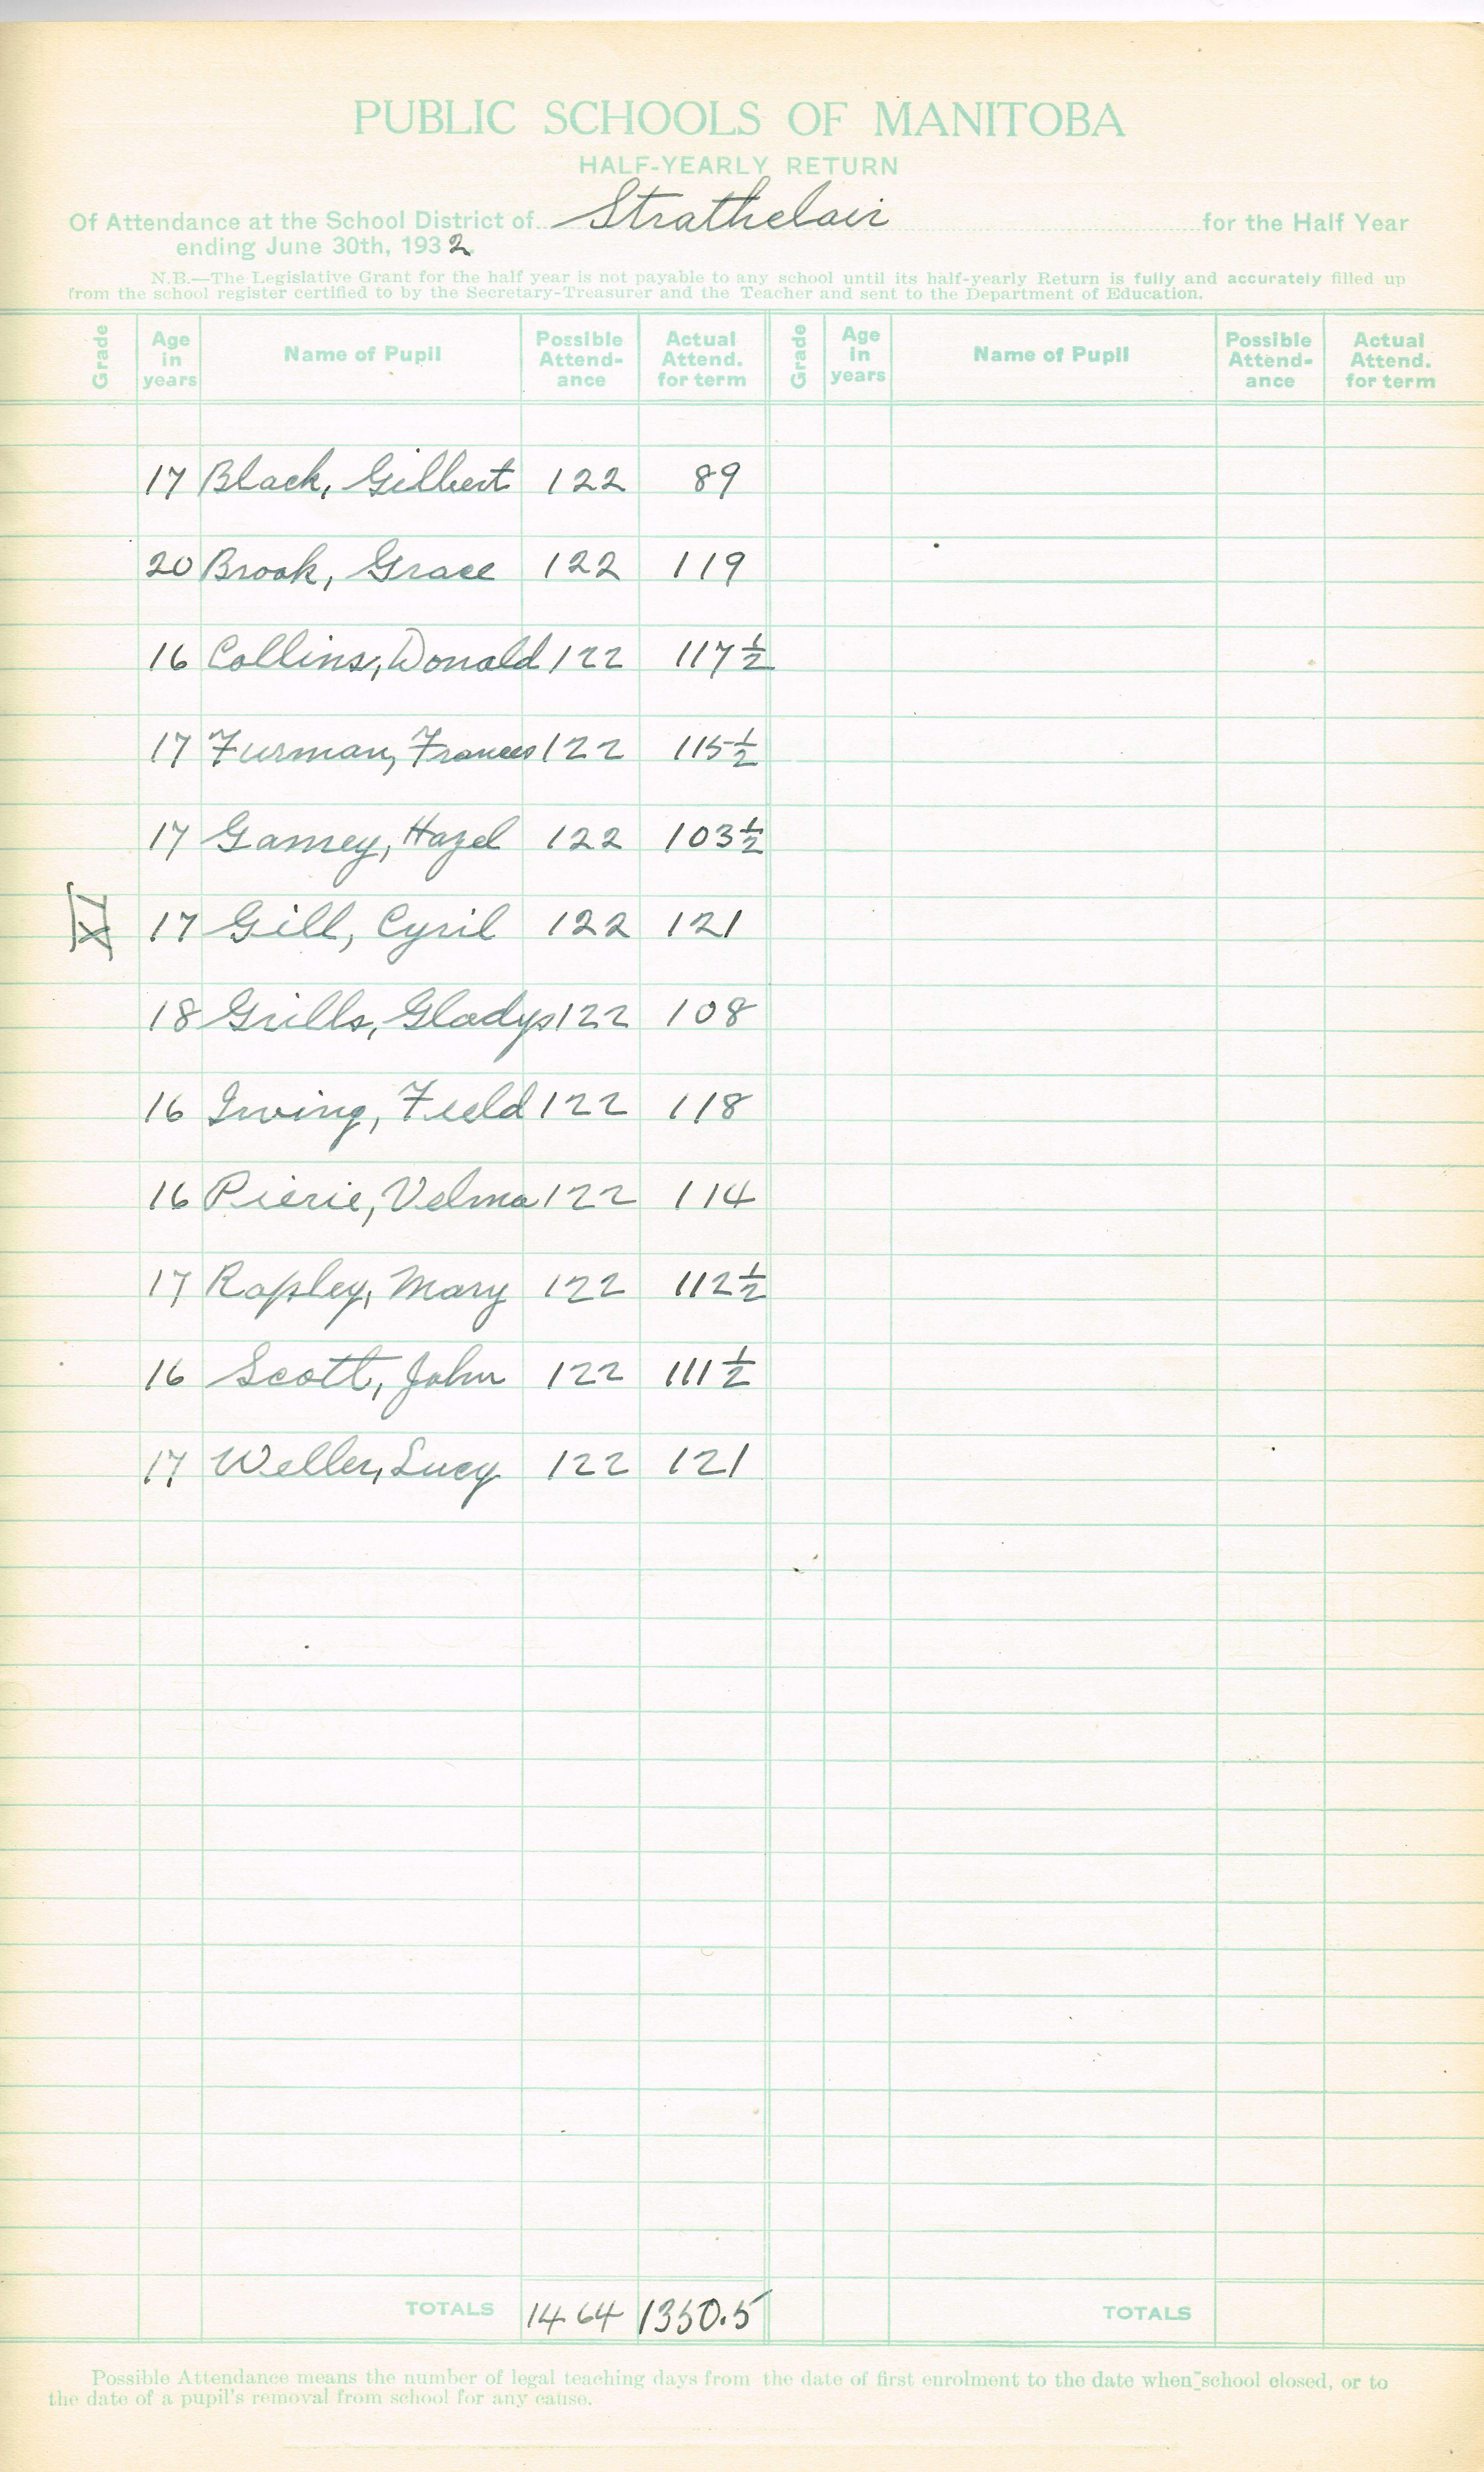 PUBLIC SCHOOLS OF MANITOBA
HALF-YEARLY RETURN
Of Attendance at the School District of Strathclair for the Half Year
ending June 30th, 1932
N.B.—The Legislative Grant for the half year is not payable to any school until its half-yearly Return is fully and accurately filled up
from the school register certified to by the Secretary-Treasurer and the Teacher and sent to the Department of Education.
Grade Age in years Name of Pupil Possible Attend-ance Actual Attend. for term Grade Age in years Name of Pupil Possible Attend-ance Actual Attend. for term
17 Black, Gilbert 122 89
20 Brook, Grace 122 119
16 Collins, Donald 122 117 ½
17 Furman, Frances 122 115 ½
17 Gamey, Hazel 122 103 ½
XI 17 Gill, Cyril 122 121
18 Grills, Gladys 122 108
16 Irving, Field 122 118
16 Pierie, Velma 122 114
17 Rapley, Mary 122 112 ½
16 Scott, John 122 111 ½
17 Weller, Lucy 122 121
TOTALS 1464 1350.5 TOTALS
Possible Attendance means the number of legal teaching days from the date of first enrolment to the date when school closed, or to
the date of a pupil's removal from school for any cause.